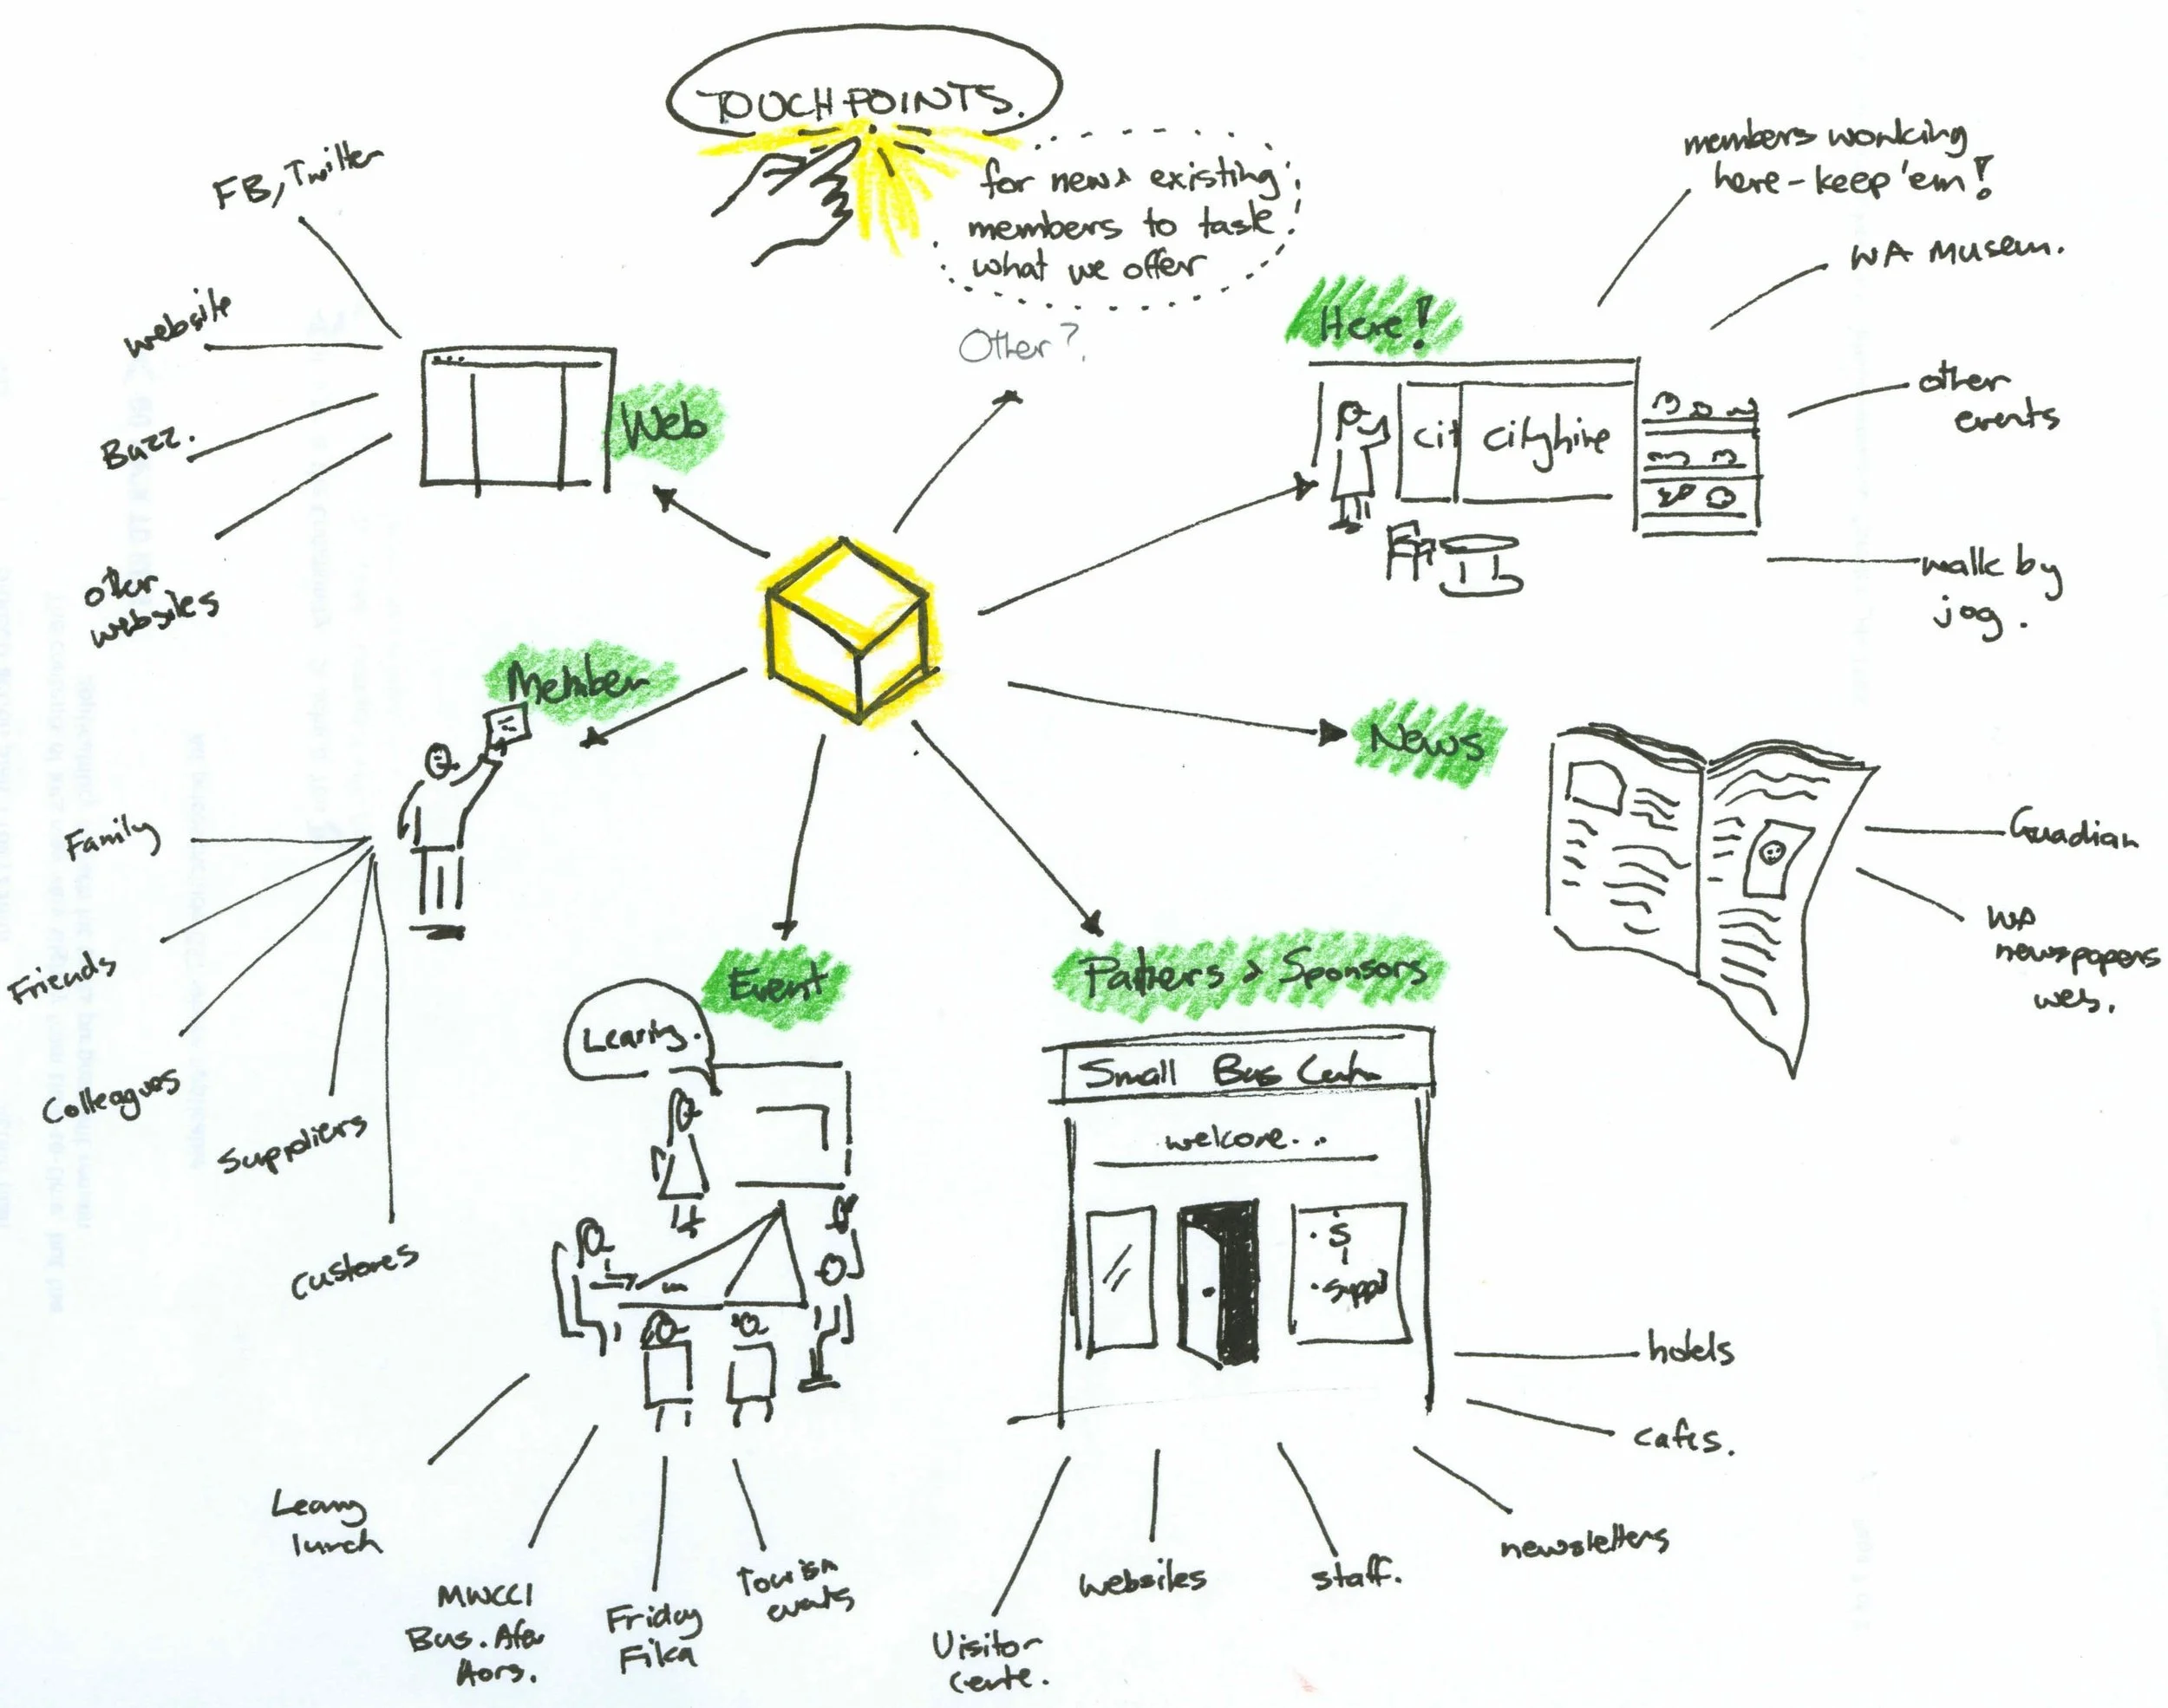 TOUCHPOINTS.
for new & existing
members to task
what we offer
Other?
FB, Twitter
website
Buzz.
other
websites
Web
Here!
cit
cityhive
members working
here - keep 'em!
WA Museum.
other
events
walk by
jog.
Member
Family
Friends
Colleagues
Suppliers
custores
News
Guadian
WA
newspapers
web.
Event
Learing.
Leang
lunch
MWCCI
Bus. Afer
Hors.
Friday
Fika
Tourism
events
Patners & Sponsors
Small Bus Centr
welcome...
$
suppo
hotels
cafes.
newsletters
staff.
websites
Visitor
Cente.